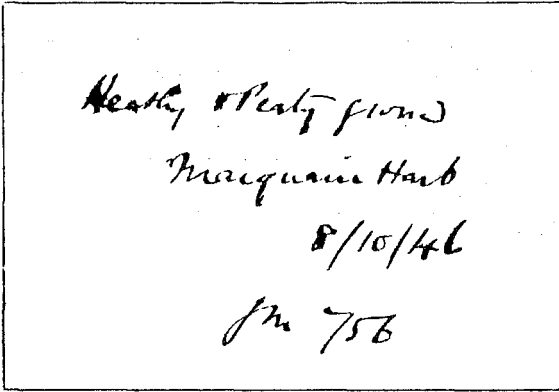 Heathy & Peaty ground
Macquarie Harb
8/10/46
Jm 756